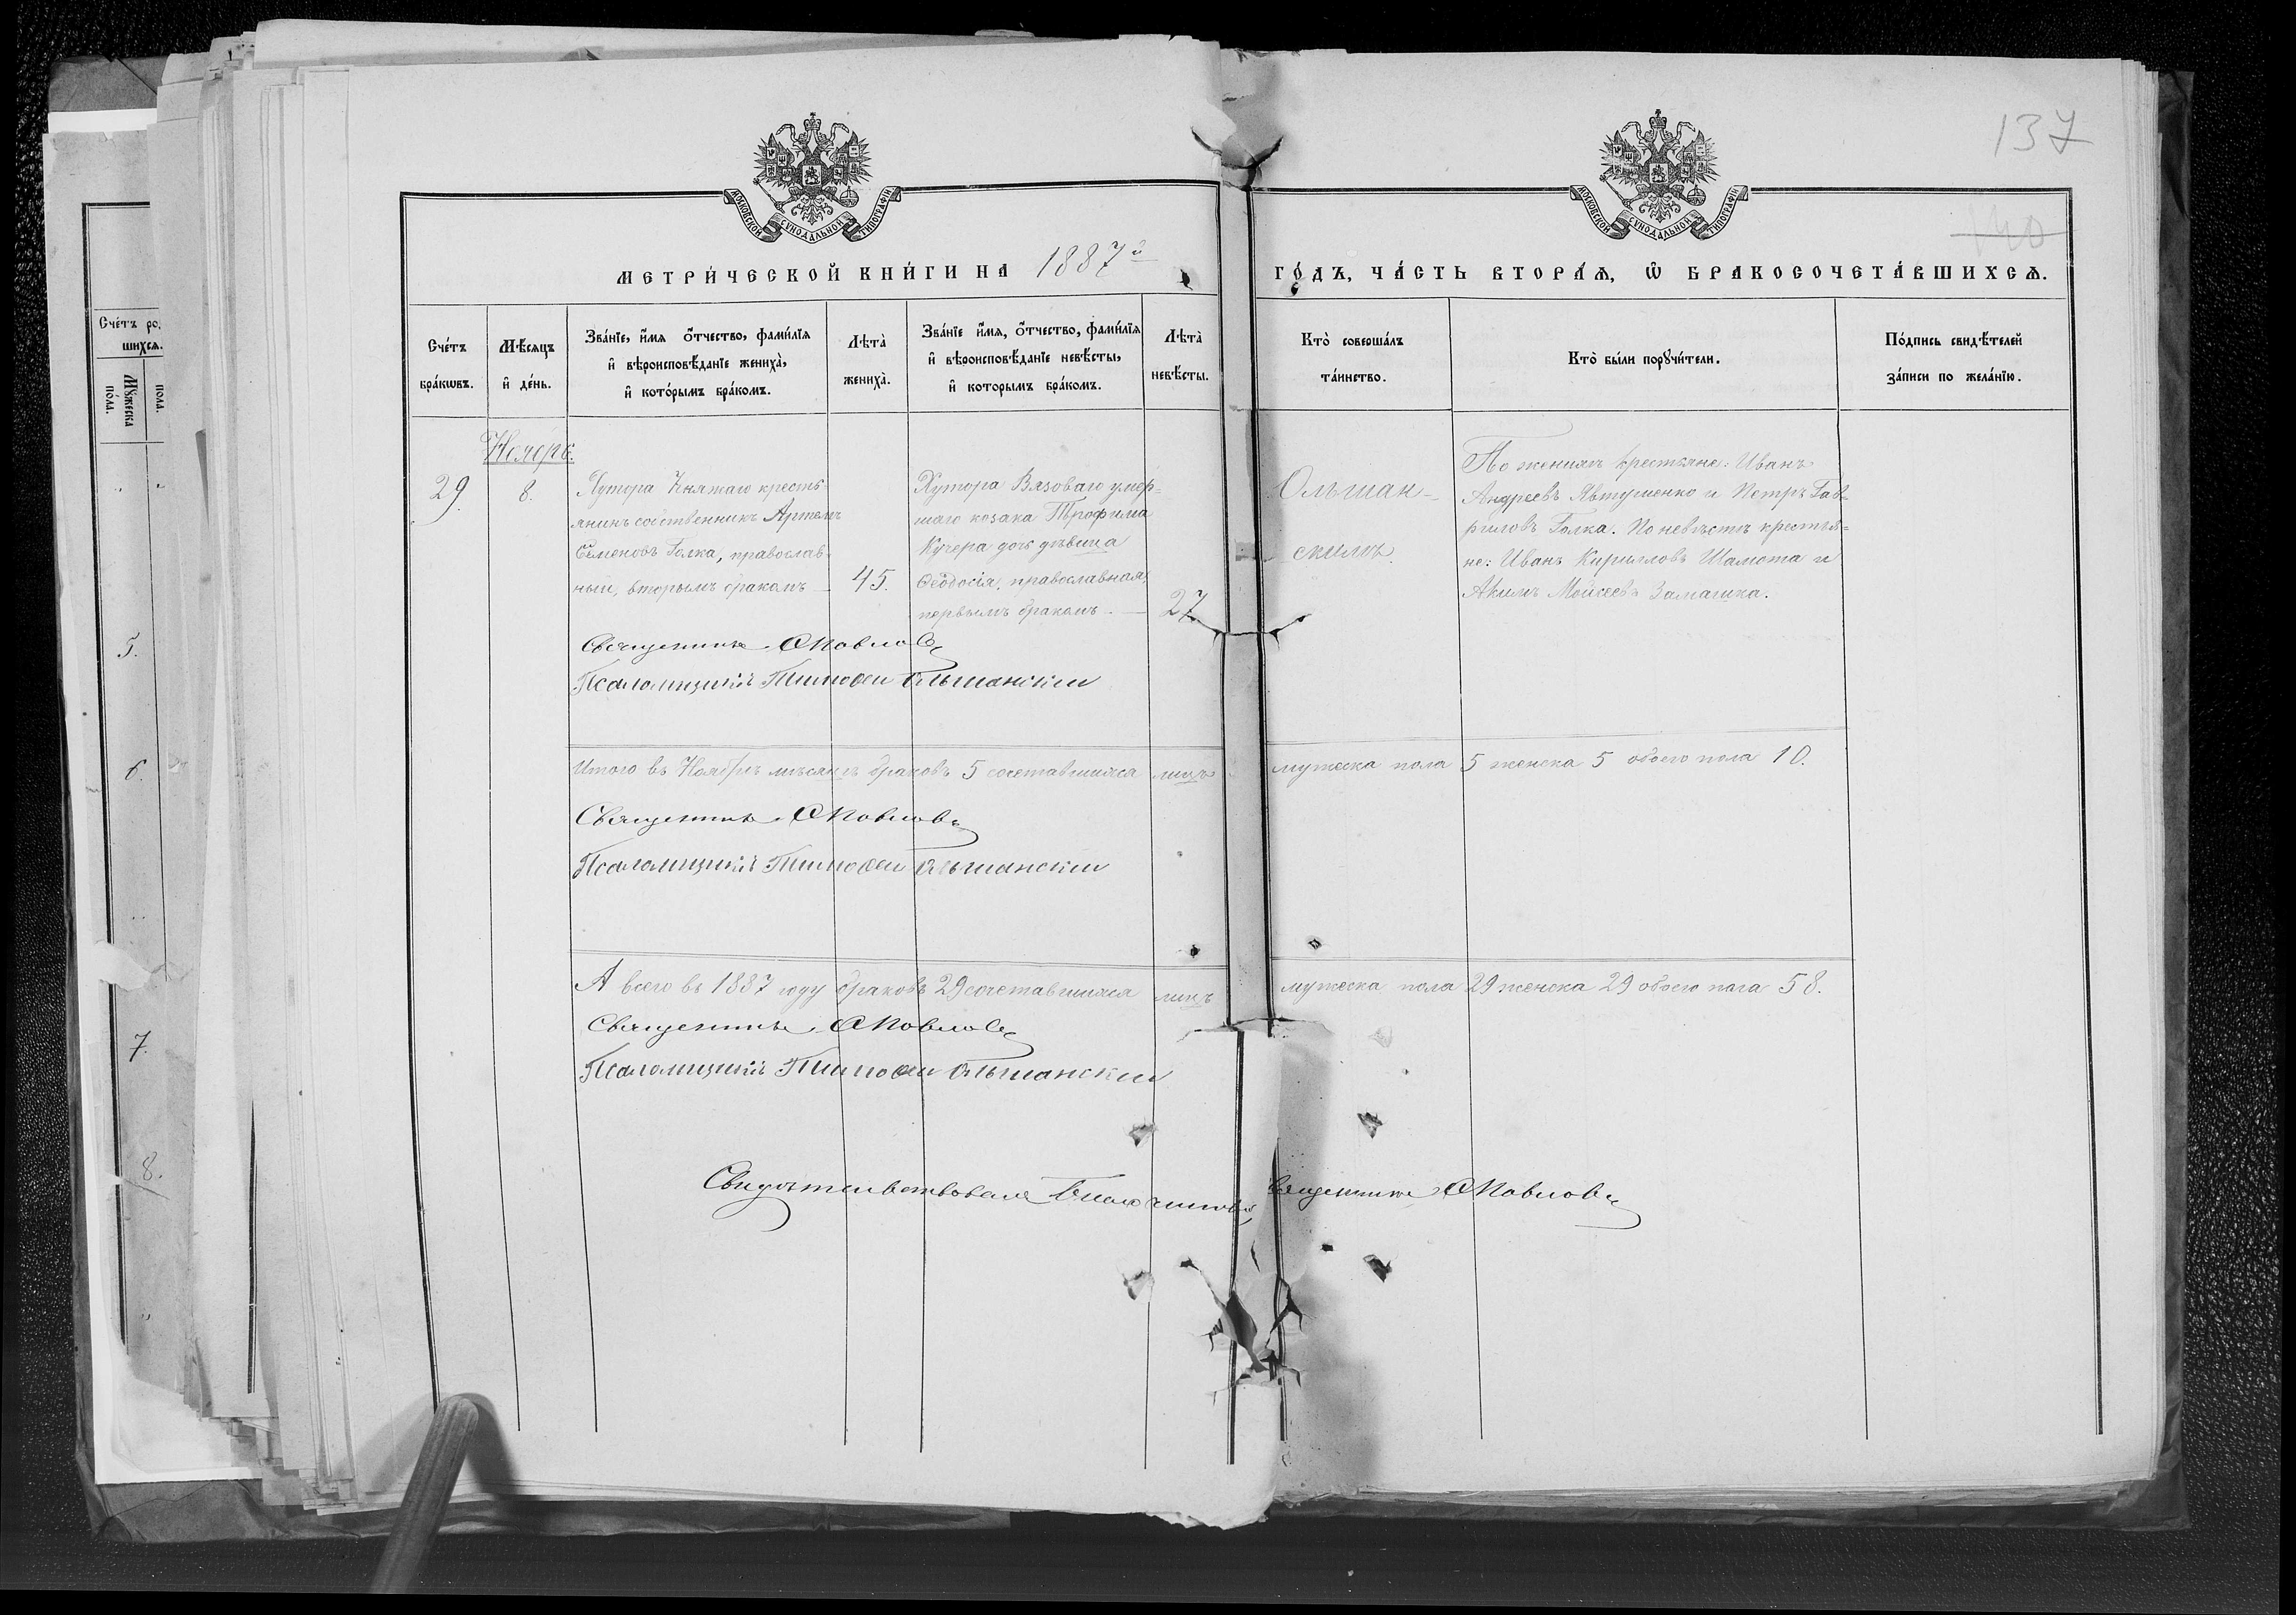 137
140
МОСКОВСКОЙ СѴНОДАЛЬНОЙ ТИПОГРАФІИ
МОСКОВСКОЙ СѴНОДАЛЬНОЙ ТИПОГРАФІИ
МЕТРИ́ЧЕСКОЙ КНИ́ГИ НА 1887й ГО́ДЪ, ЧА́СТЬ ВТОРА́Я, Ѿ БРАКОСОЧЕТА́ВШИХСЯ.
Сче́тъ бра́кѡвъ.
Мѣ́сяцъ и҆ де́нь.
Зва́нїе, и҆́мя ѻ҆́тчество, фами́лїя
и҆ вѣроисповѣ́данїе жениха̀,
и҆ кото́рымъ бра́комъ.
Лѣта̀ жениха̀.
Зва́нїе и҆́мя, ѻ҆́тчество, фами́лїя
и҆ вѣроисповѣ́данїе невѣ́сты,
и҆ которымъ бра́комъ.
Лѣта̀ невѣ́сты.
Кто̀ соверша́лъ
та́инство.
Кто̀ бы́ли порꙋчи́тели.
По́дпись свидѣ́телей
за́писи по жела́нїю.
Сче́тъ ро
шихся.
Мꙋжеска по́ла.
пола.
5.
6.
7.
8.
Ноябрь.
29
8.
Хутора Княжаго кресть-
янинъ собственникъ Артемъ
Семеновъ Голка, православ-
ный, вторымъ бракомъ —
45.
Хутора Вязоваго умер-
шаго козака Трофима
Кучера дочь дѣвица
Ѳеодосія, православная,
первымъ бракомъ. —
27
Ольшан-
скимъ.
По женихѣ крестьяне: Иванъ
Андреевъ Явтушенко и Петръ Гав-
риловъ Голка. По невѣстѣ крестья-
не: Иванъ Кирилловъ Шамота и
Акимъ Моисеевъ Замашка.
Священникъ С Павловъ
Псаломщикъ Тимоѳей Ольшанскій
Итого въ Ноябрѣ мѣсяцѣ браковъ 5 сочетавшихся лицъ мужеска пола 5 женска 5 обоего пола 10.
Священникъ С Павловъ
Псаломщикъ Тимоѳей Ольшанскій
А всего въ 1887 году браковъ 29 сочетавшихся лицъ мужеска пола 29 женска 29 обоего пола 58.
Священникъ С Павловъ
Псаломщикъ Тимоѳей Ольшанскій
Свидѣтельствовалъ Благочинный Священникъ С Павловъ